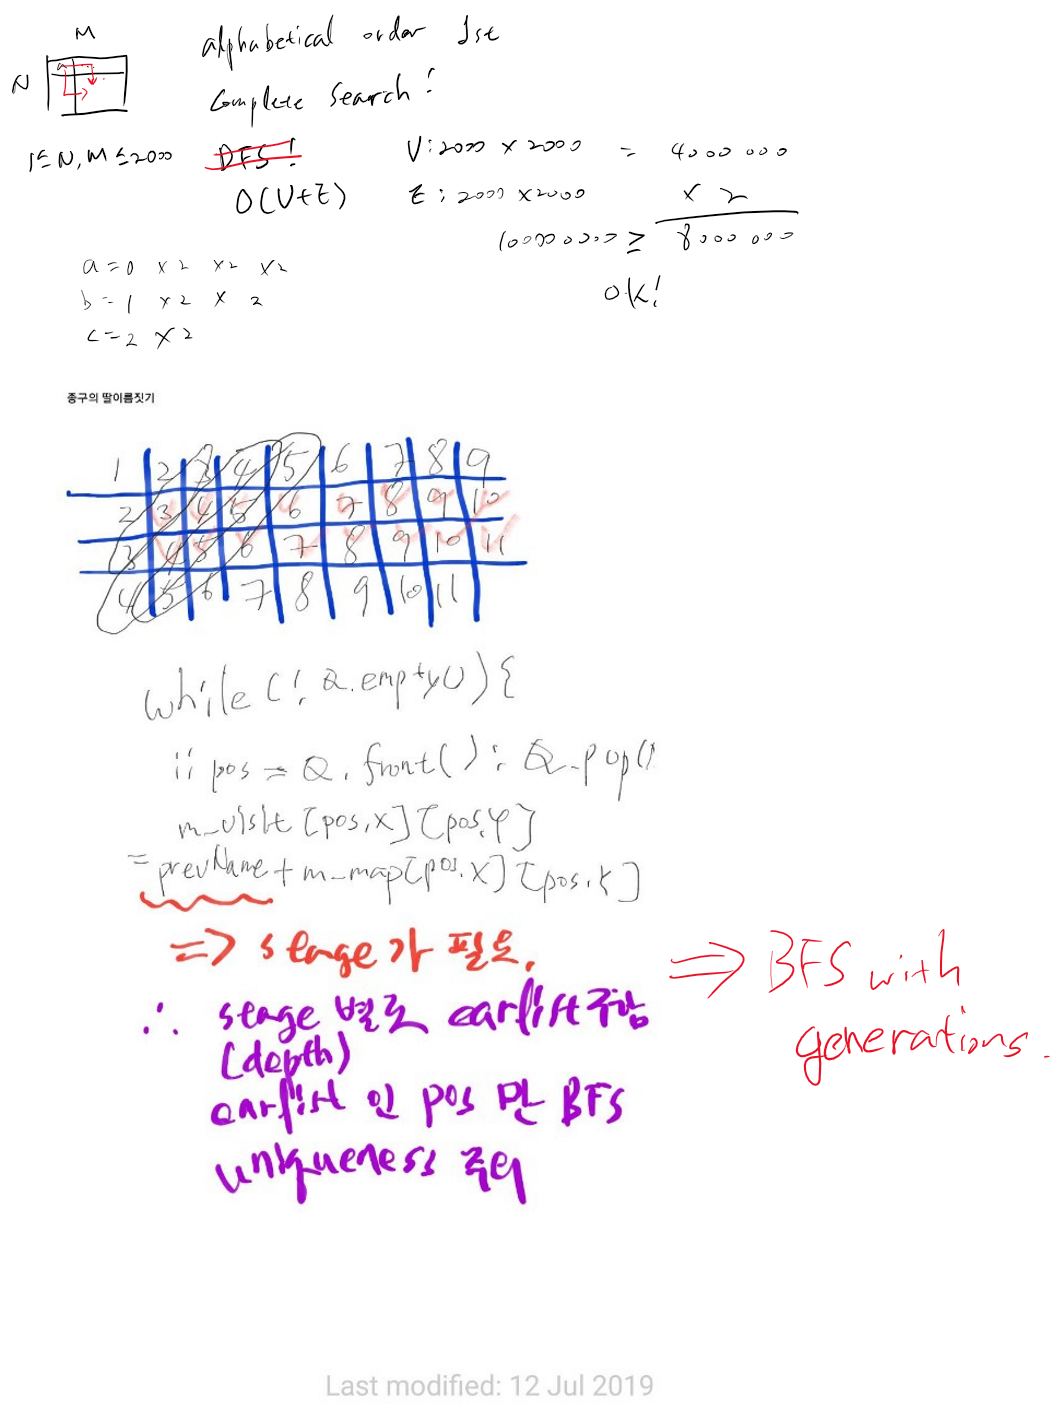 M
alphabetical order 1st
N
a
Complete Search!
1≤N,M≤2000
DFS!
V:2000 × 2000 = 4000000
O(V+E)
E: 2000 ×2000 × 2
100000000 ≥ 8000000
OK!
a=0 ×2 ×2 ×2
b=1 ×2 × 2
c=2 ×2
종구의 딸이름짓기
1 2 3 4 5 6 7 8 9
2 3 4 5 6 7 8 9 10
3 4 5 6 7 8 9 10 11
4 5 6 7 8 9 10 11
while(!Q.empty()){
ii pos = Q.front(); Q.pop()
m_visit[pos.x][pos.y]
=prevName+m_map[pos.x][pos.y]
=> stage가 필요.
=> BFS with
generations.
∴ stage 별로 earlist구함
(depth)
earlist 인 pos 만 BFS
uniqueness 주의
Last modified: 12 Jul 2019